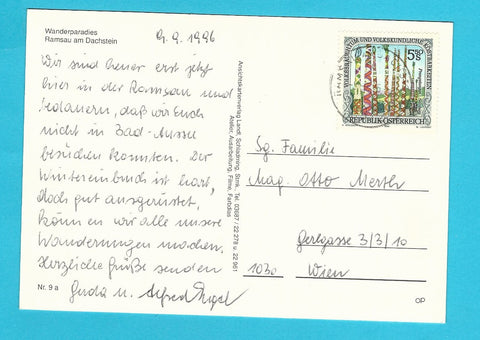 Wanderparadies
Ramsau am Dachstein
9. 1996
Wir sind heuer erst jetzt
hier in der Ramsau und
bedauern, daß wir Euch
nicht in Bad-Aussee
besuchen konnten. Der
Wintereinbruch ist hart,
doch gut ausgerüstet,
können wir alle unsere
Wanderungen machen.
Herzliche Grüße senden
Gerda u. Alfred
Nr. 9 a
Ansichtskartenverlag Landl, Schladming, Stmk., Tel. 03687 / 22 278 u. 22 961
Atelier, Ausarbeitung, Filme, Farbdias
VOLKSBRAUCHTUM UND VOLKSKUNDLICHE KOSTBARKEITEN
5.50
REPUBLIK ÖSTERREICH
Sg. Familie
Mag. Otto Merth
Gerlgasse 3/3/10
1030 Wien
OP